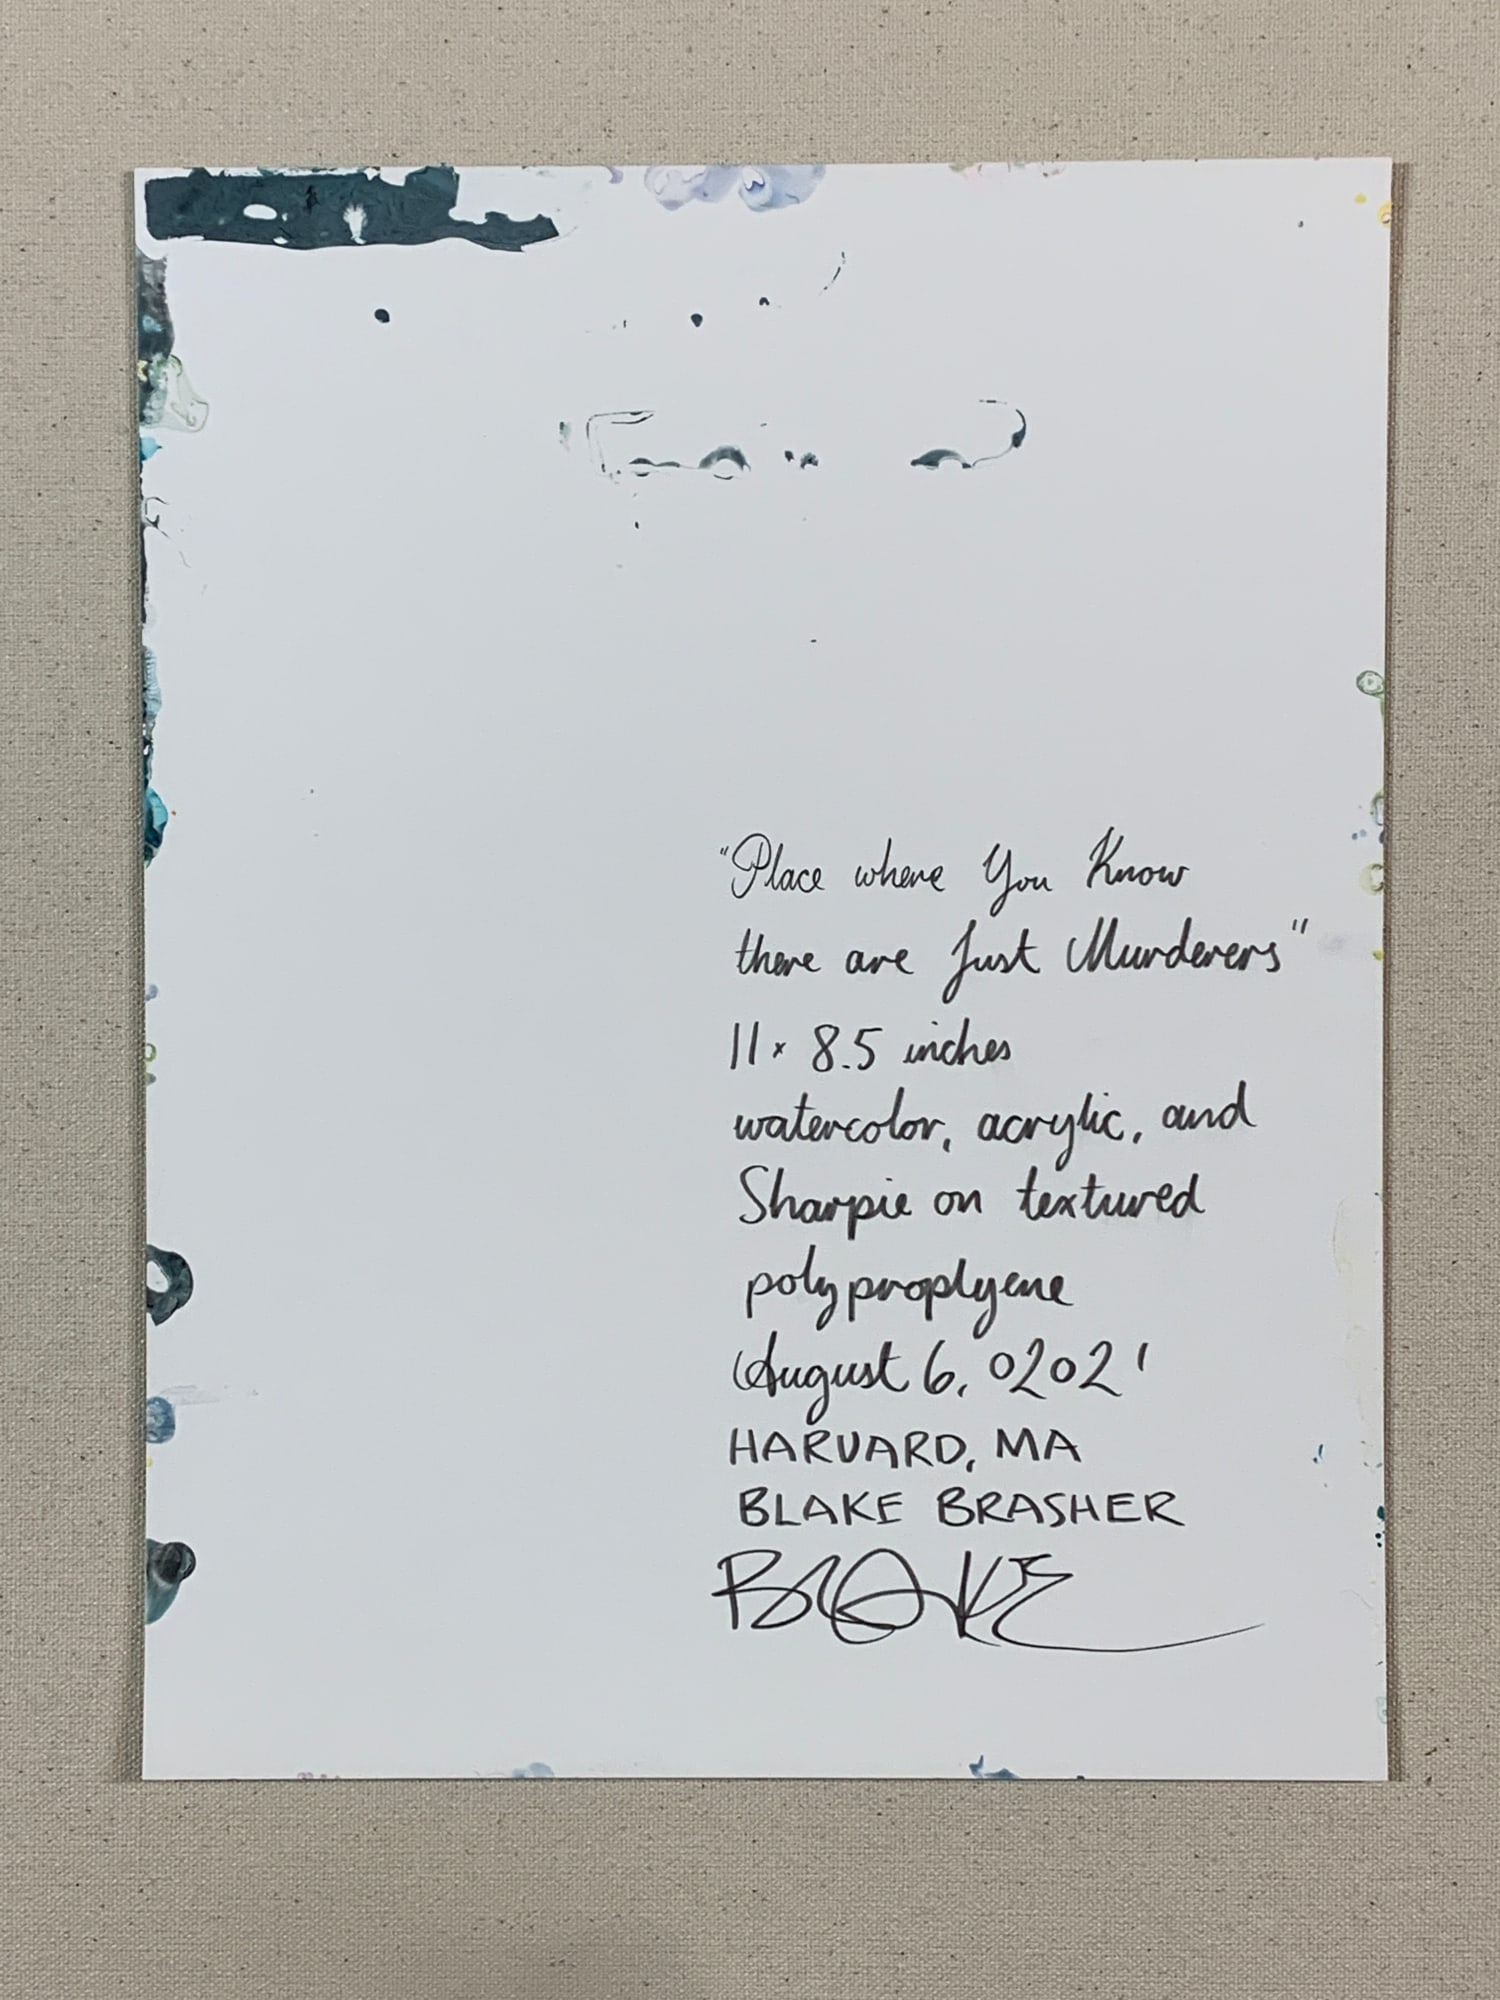 "Place where You Know
there are Just Murderers"
11 x 8.5 inches
watercolor, acrylic, and
Sharpie on textured
polyproplyene
August 6, 02021
HARVARD, MA
BLAKE BRASHER
BLAKE